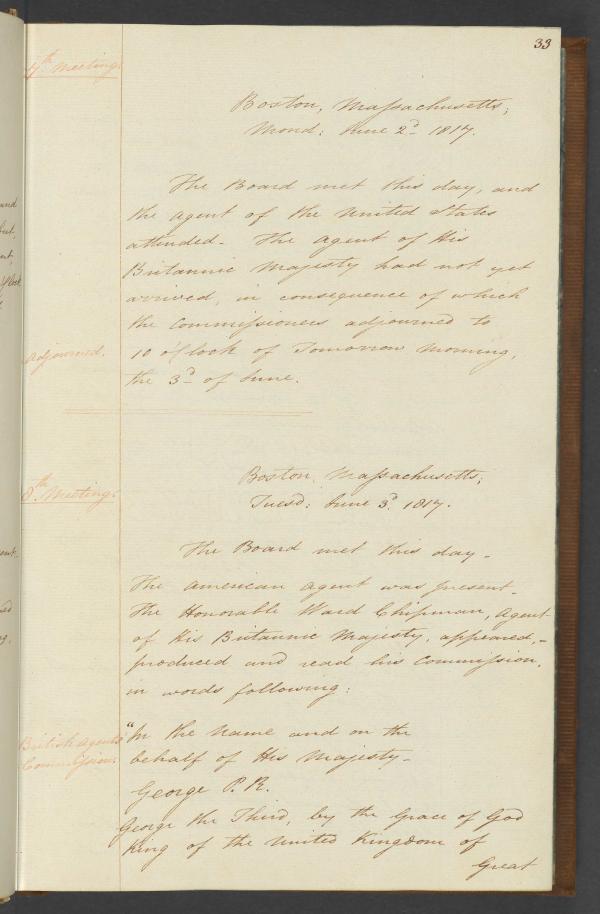 33
7th Meeting.
Boston, Massachusetts;
Mond: June 2d 1817.
The Board met this day, and
the agent of the United States
attended. The agent of His
Britannic Majesty had not yet
arrived, in consequence of which
the Commissioners adjourned to
Adjourned.
10 o'Clock of Tomorrow morning,
the 3d of June.
8th Meeting.
Boston, Massachusetts;
Tuesd: June 3d 1817.
The Board met this day.
The American agent was present.
The Honorable Ward Chipman, Agent
of His Britannic Majesty, appeared,
produced and read his Commission,
in words following:
British agents
Commission.
"In the name and on the
behalf of His Majesty.
George P. R.
George the Third, by the Grace of God
King of the United Kingdom of
Great